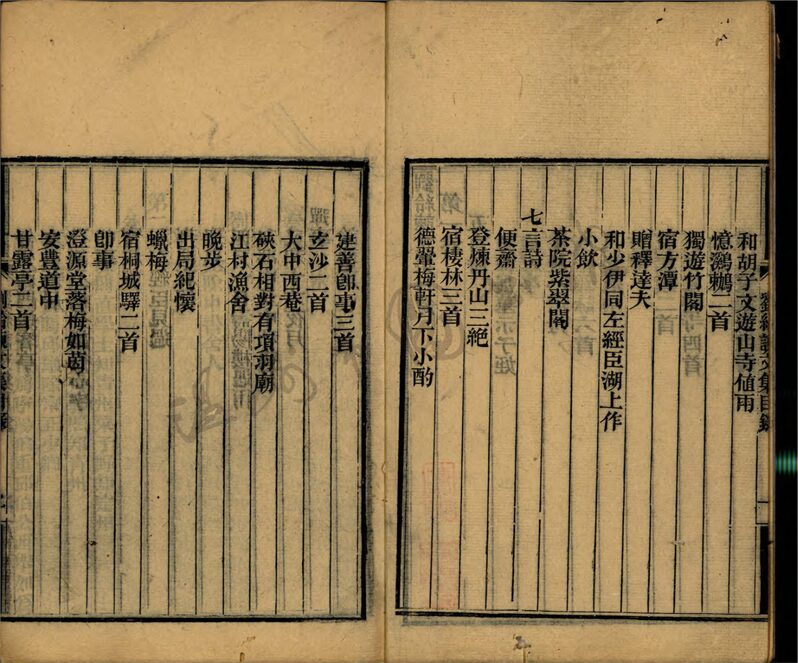 和胡子文遊山寺值雨
憶鸂鶒二首
獨遊竹閣
宿方潭
贈釋達夫
和少伊同左經臣湖上作
小飲
茶院紫翠閣
七言詩
便齋
登煉丹山三絶
宿棲林三首
德翬梅軒月下小酌
建善卽事三首
玄沙二首
大中西菴
硤石相對有項羽廟
江村漁舍
晚步
出局紀懷
蠟梅
宿桐城驛二首
卽事
澄源堂落梅如茵
安豊道中
甘露亭二首